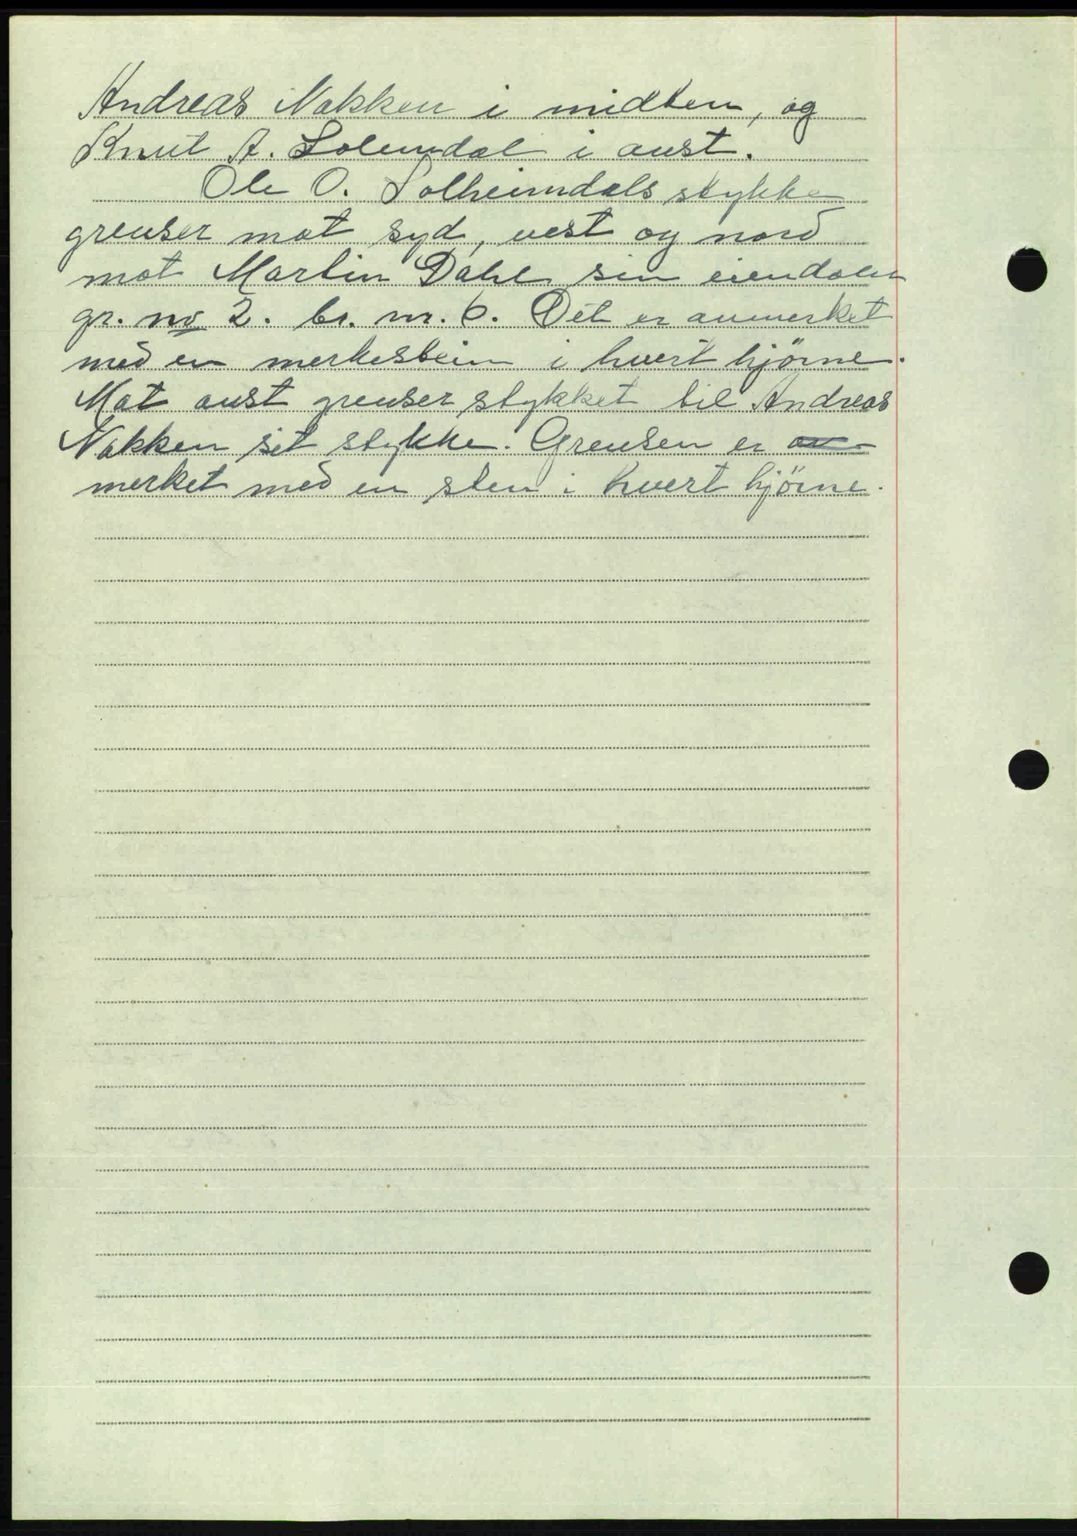 Andreas Nakken i midten, og
Knut A. Solemdal i aust.
Ole O. Solheimdals stykke
grenser mot syd, vest og nord
mot Martin Dahl sin eiendom
gr. nr 2. br. nr. 6. Det er anmerket
med en merkestein i hvert hjørne.
Mot aust grenser stykket til Andreas
Nakken sit stykke. Grensen er
merket med en sten i hvert hjørne.